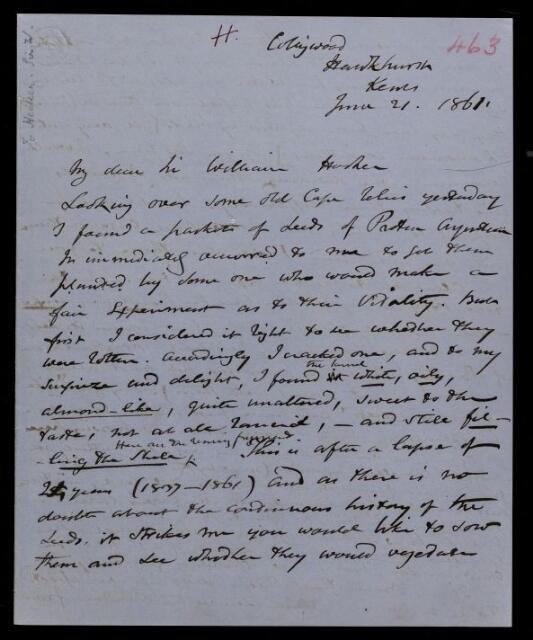 H.
463
To Hooker. Sir W.
Collingwood
Hawkhurst
Kent
June 21. 1861.
My dear Sir William Hooker
Looking over some old Cape relics yesterday
I found a packet of seeds of Protea Argentea
It immediately occurred to me to get them
planted by some one who would make a
fair Experiment as to their Vitality. But
first I considered it right to see whether they
were rotten. Accordingly I cracked one, and to my
surprize and delight, I found the kernel white, oily,
almond-like, quite unaltered, sweet to the
taste, not at all rancid, – and still fil-
-ling the Shell. This is after a lapse of
Here are the
24 years (1837–1861) and as there is no
doubt about the continuous history of the
seeds. it strikes me you would like to sow
them and see whether they would vegetate